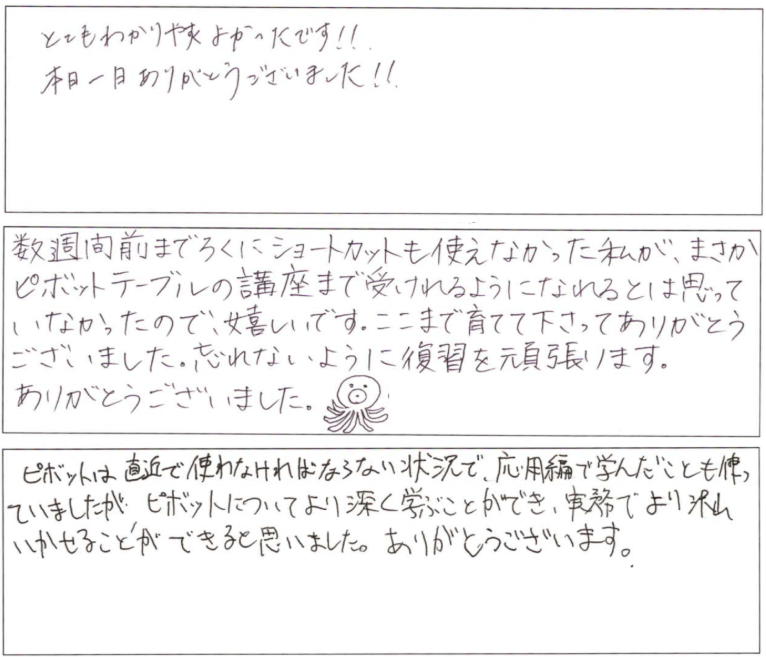 とてもわかりやすく よかったです!!
本日一日ありがとうございました!!
数週間前までろくにショートカットも使えなかった私が、まさか
ピボットテーブルの講座まで受けれるようになれるとは思って
いなかったので、嬉しいです。ここまで育てて下さってありがとう
ございました。忘れないように復習を頑張ります。
ありがとうございました。
ピボットは直近で使わなければならない状況で、応用編で学んだことも使っ
ていましたが ピボットについてより深く学ぶことができ、実務でより
いかせることができると思いました。ありがとうございます。